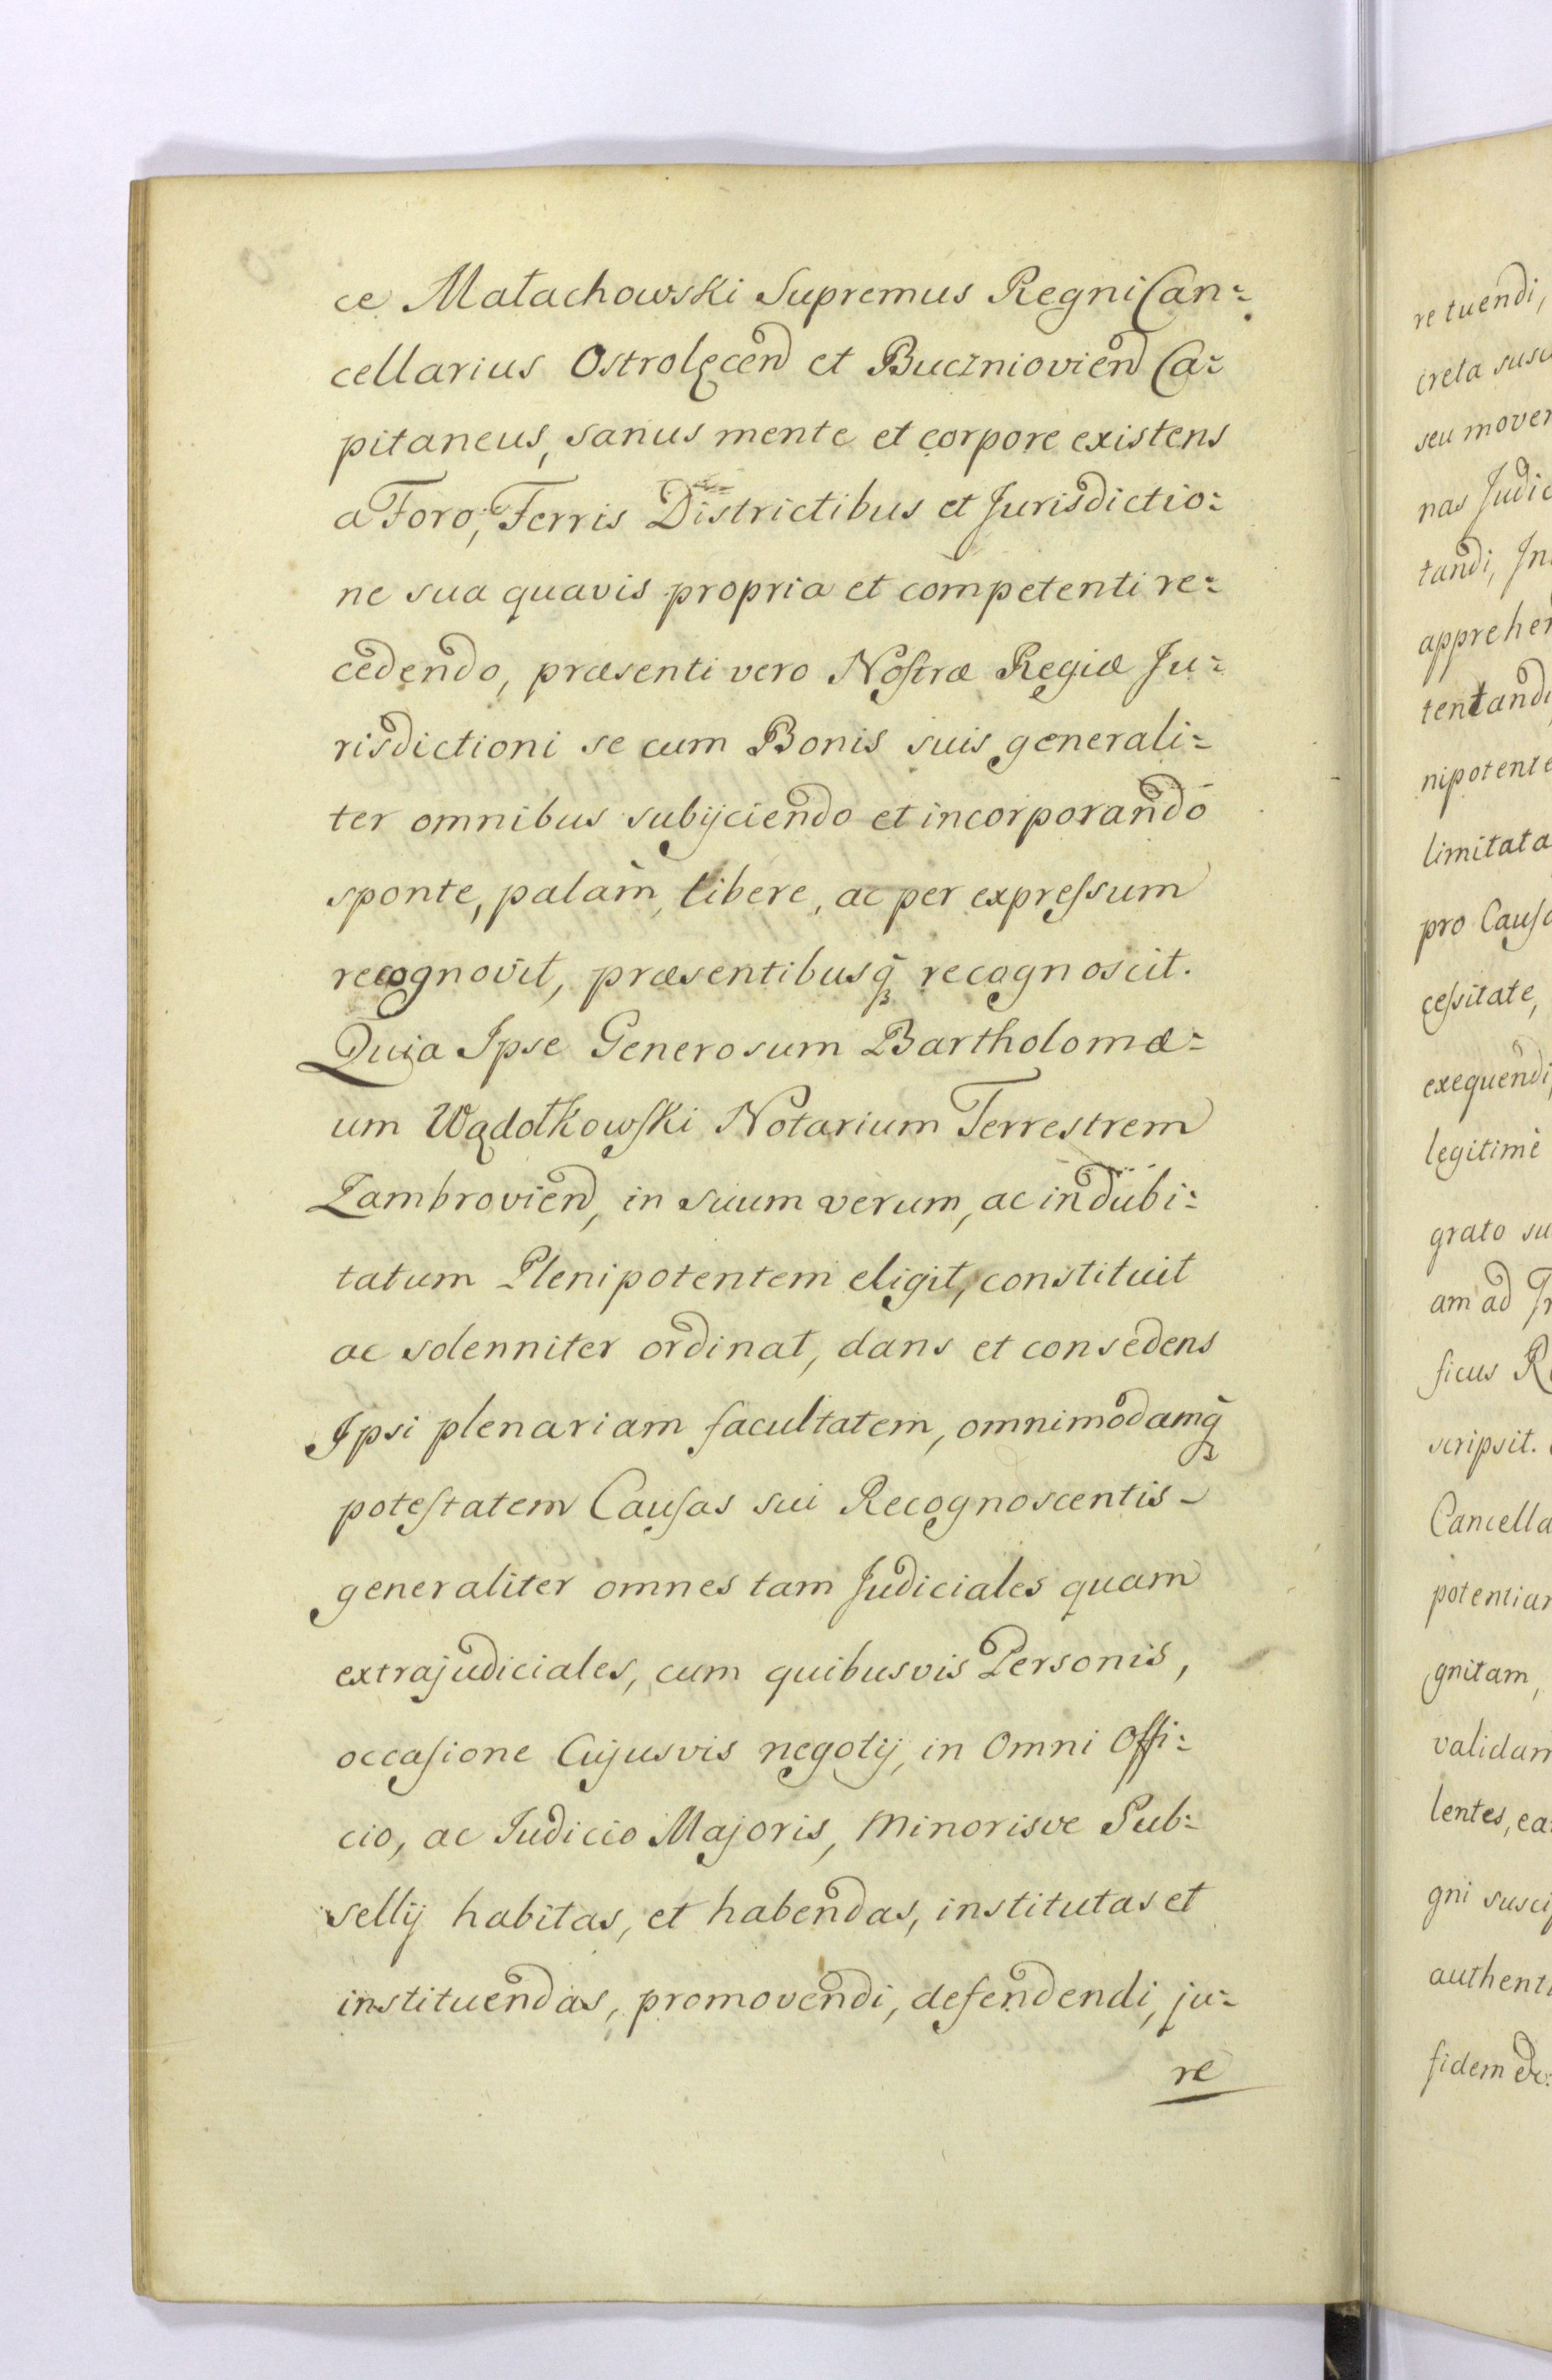 ce Małachowski Supremus Regni Can=
cellarius Ostrolęcen͠d et Buczniovien͠d Ca=
pitaneus, sanus mente et corpore existens
a Foro, Terris Districtibus et Jurisdictio=
ne sua quavis propria et competenti re=
cedendo, præsenti vero Noſtræ Regiæ Ju=
risdictioni se cum Bonis suis generali=
ter omnibus subijciendo et incorporando
sponte, palam, libere, ac per expreſsum
recognovit, præsentibusq̃ recognoscit.
Quia Ipse Generosum Bartholomæ=
um Wądołkowſki Notarium Terrestrem
Zambrovien͠d, in suum verum, ac indubi=
tatum Plenipotentem eligit, constituit
ac solenniter ordinat, dans et consedens
Ipsi plenariam facultatem, omnimodamq̃
poteſtatem Cauſas sui Recognoscentis
generaliter omnes tam Judiciales quam
extrajudiciales, cum quibusvis Personis,
occaſione Cujusvis negotij, in Omni Offi=
cio, ac Judicio Majoris, Minorisve Sub=
sellij habitas, et habendas, institutas et
instituendas, promovendi, defendendi, ju=
re
re tuendi,
creta susc
seu mover
nas Judic
tandi, In
apprehen
tentandi
nipotente
limitata
pro Cauſa
ceſsitate,
exequendi,
legitimè
grato su
am ad In
ficus Re
scripsit.
Cancella
potentiam
gnitam,
validam
lentes, ea
gni suscip
authenti
fidem &c: